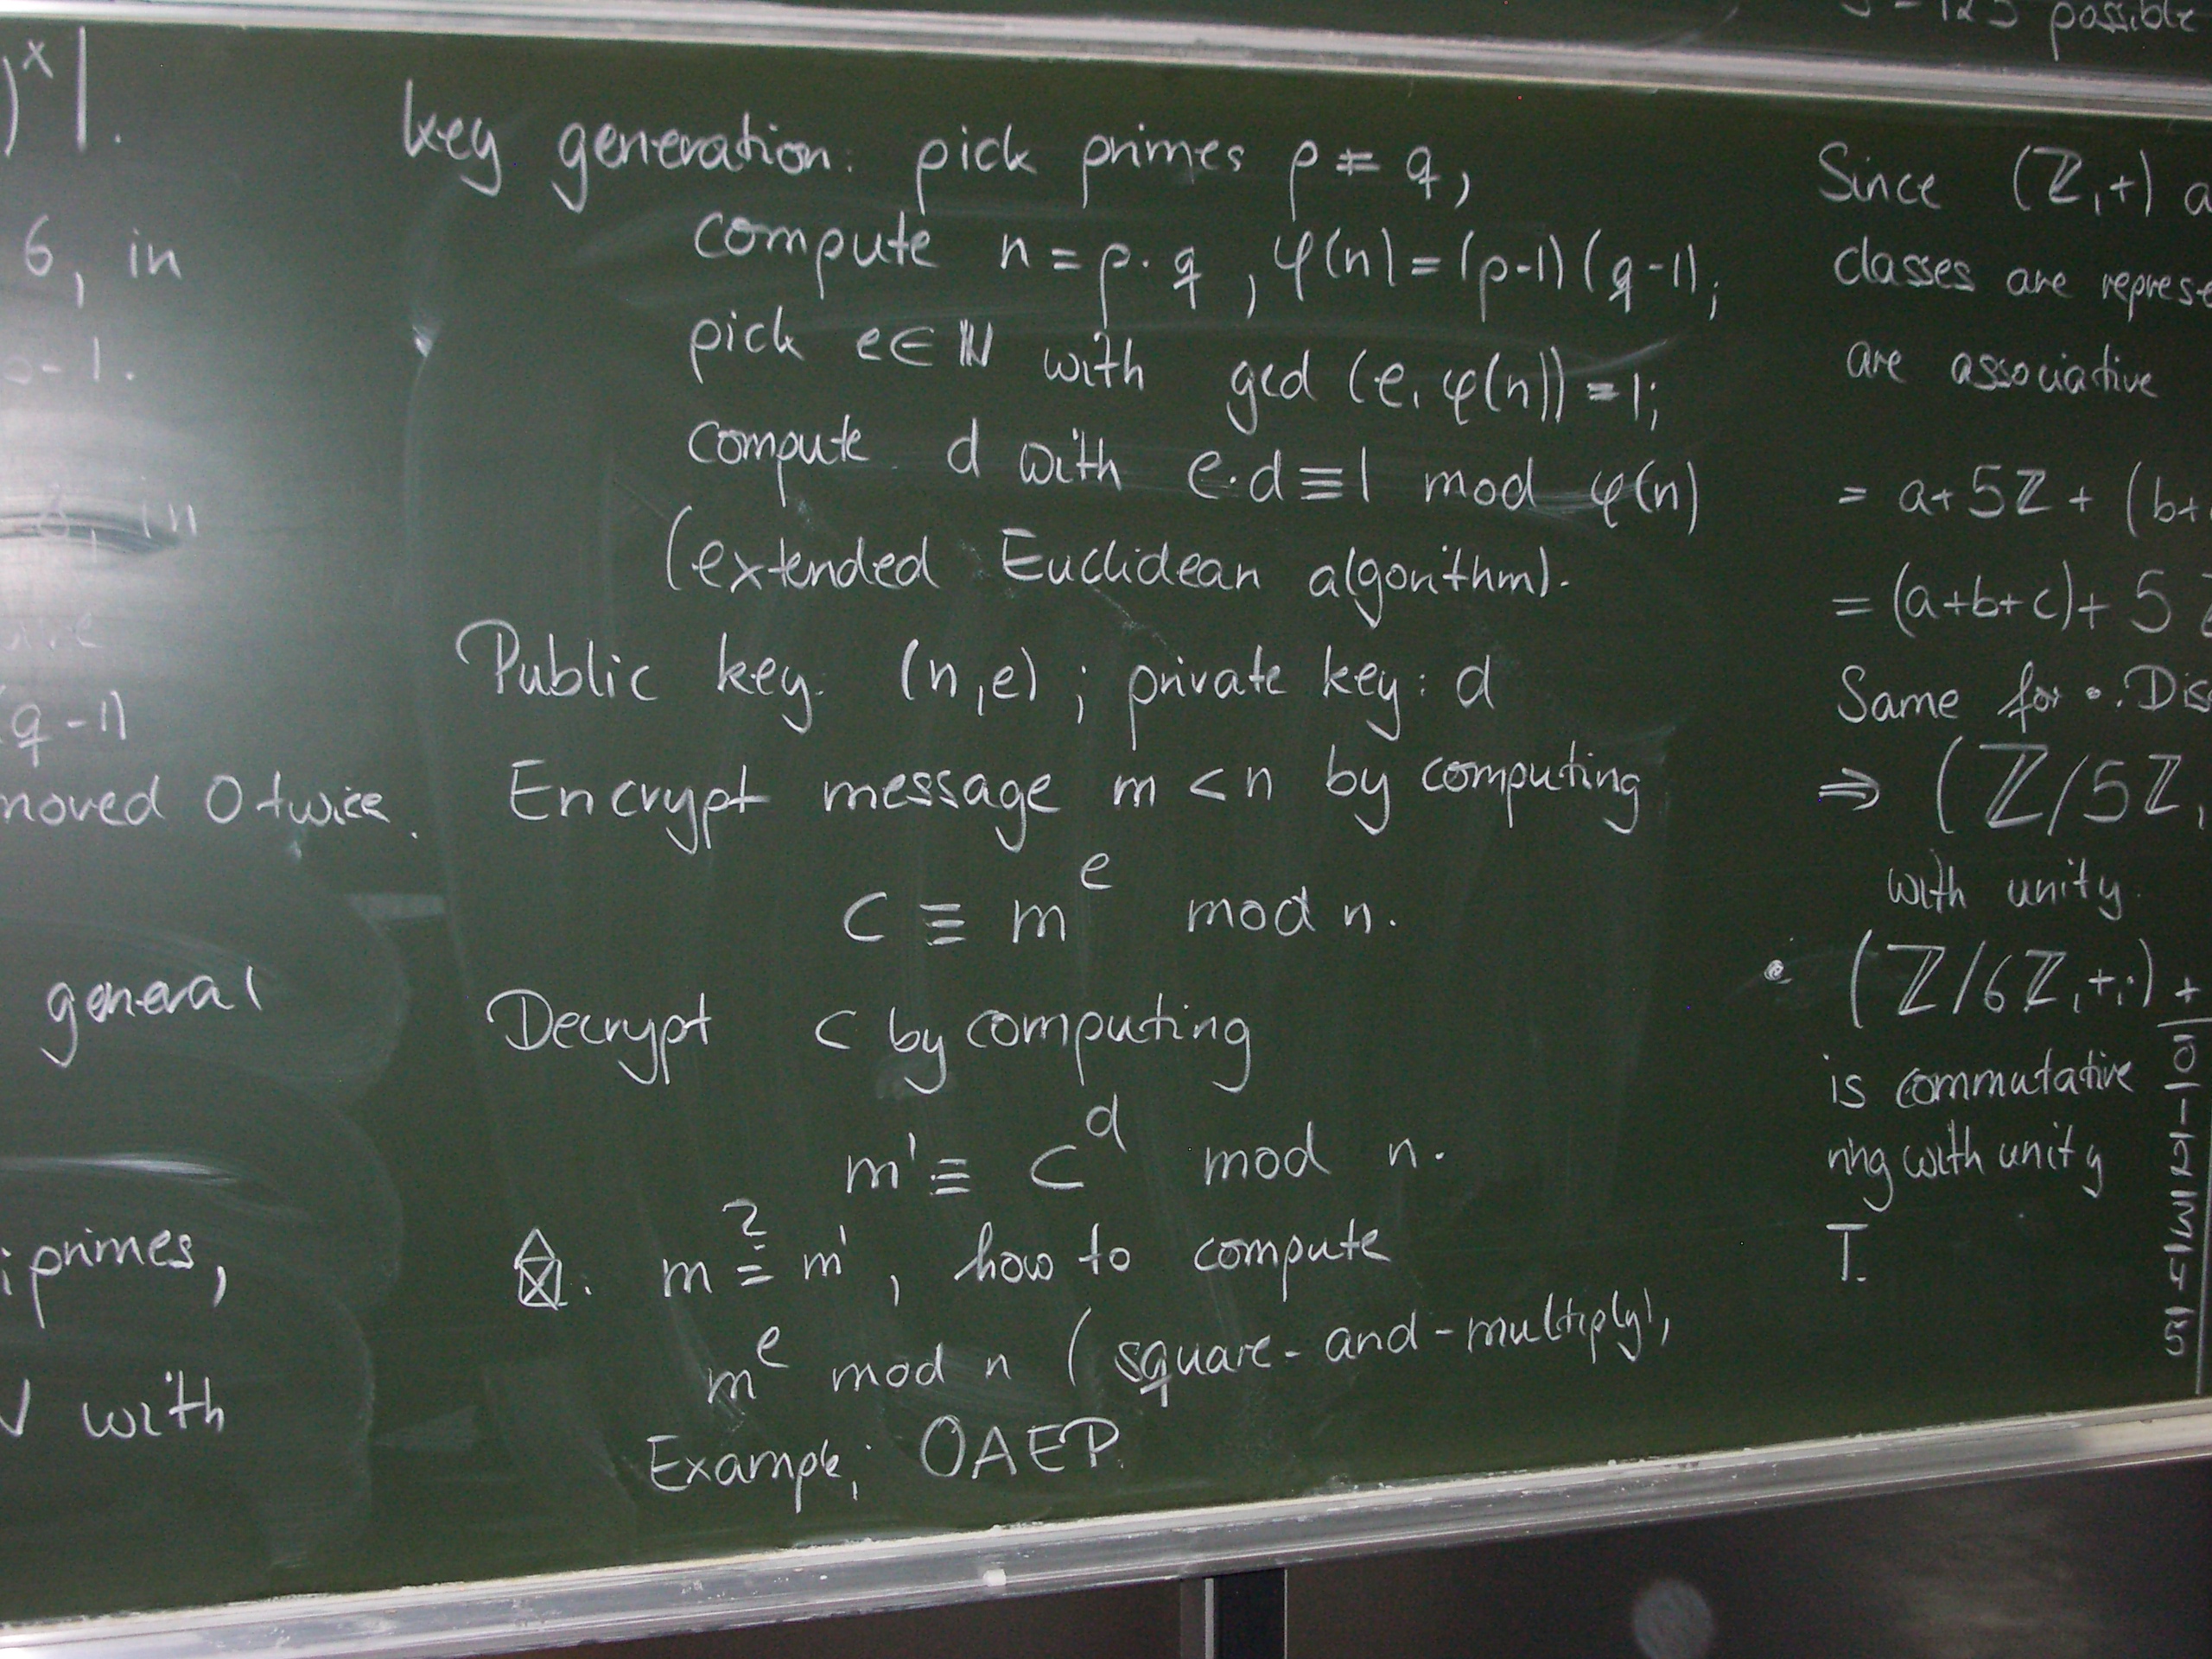 )ˣ|.
6, in
-1.
6, in
(q-1)
moved 0 twice.
general
primes,
with
key generation: pick primes p ≠ q,
compute n = p·q, φ(n) = (p-1)(q-1);
pick e ∈ ℕ with gcd (e, φ(n)) = 1;
compute d with e·d ≡ 1 mod φ(n)
(extended Euclidean algorithm).
Public key: (n,e); private key: d
Encrypt message m < n by computing
c ≡ mᵉ mod n.
Decrypt c by computing
m' ≡ cᵈ mod n.
m ≟ m', how to compute
mᵉ mod n (square-and-multiply),
Example; OAEP
possible
Since (ℤ,+) a
classes are represe
are associative
= a+5ℤ + (b+
= (a+b+c)+ 5ℤ
Same for •. Dis
⇒ (ℤ/5ℤ,
with unity.
• (ℤ/6ℤ,+,·)
is commutative
ring with unity
T.
+ | 0 1 2 3 4 5